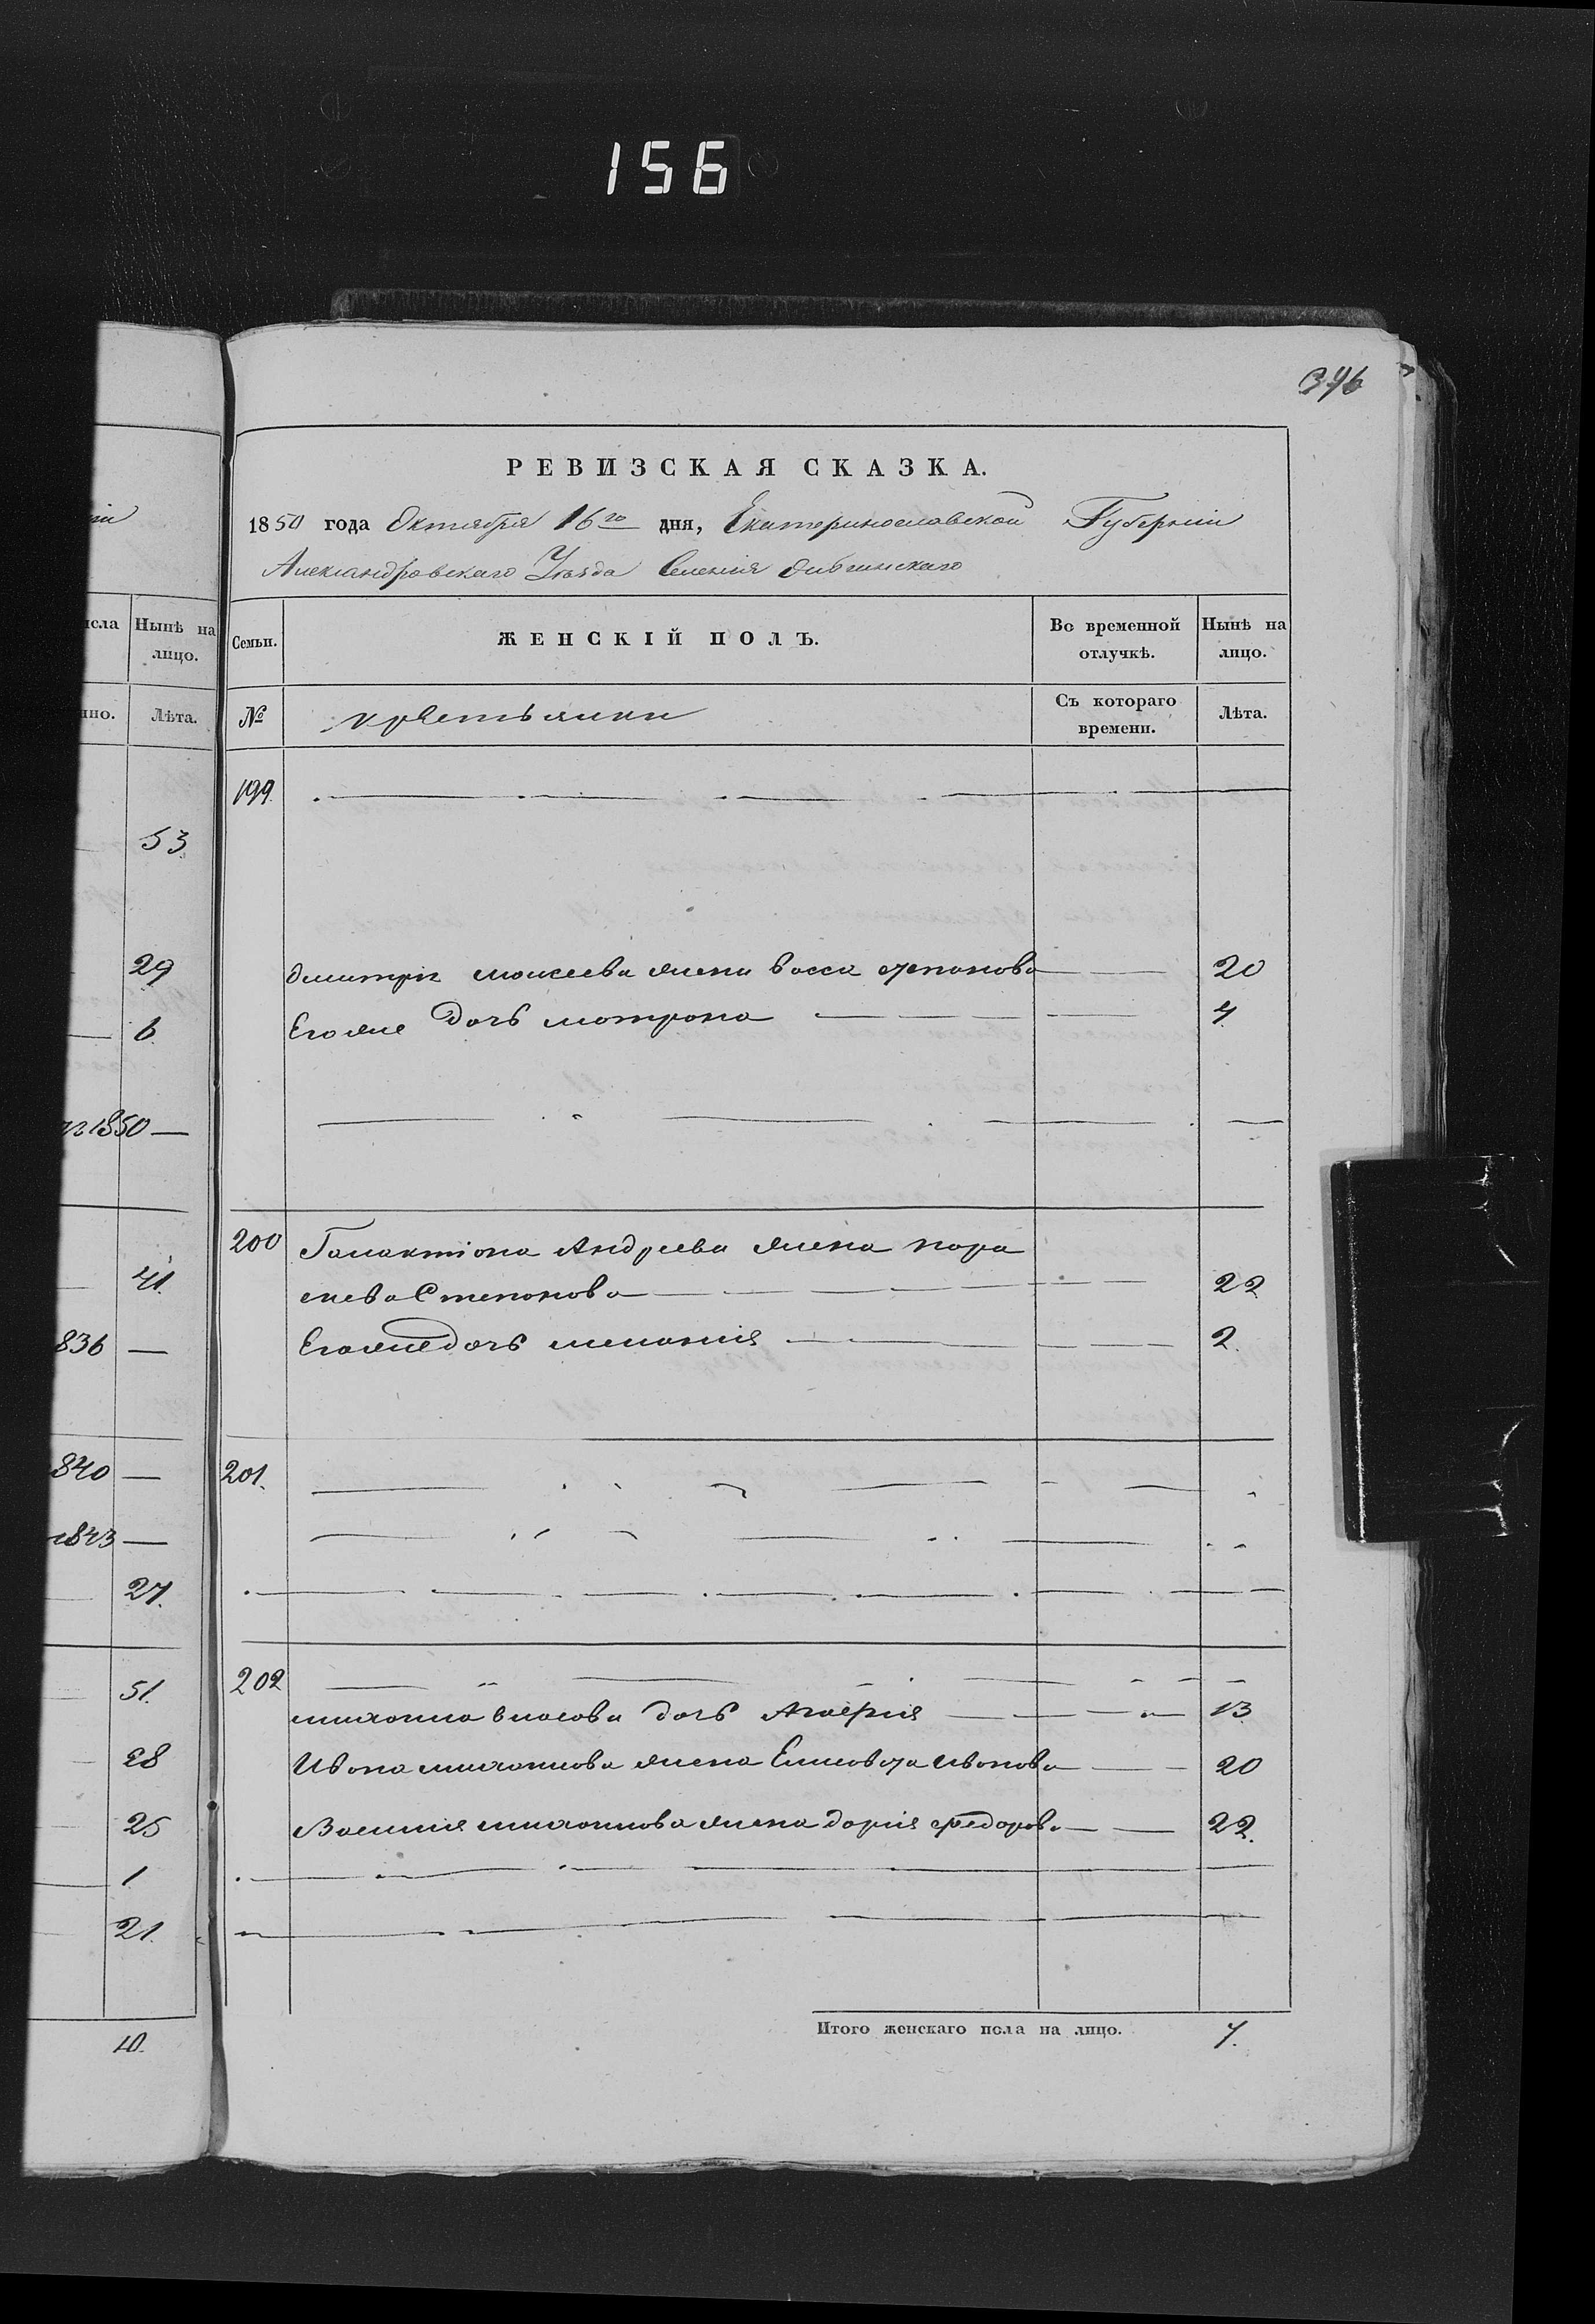 156
396
РЕВИЗСКАЯ СКАЗКА.
1850 года Октября 16го дня, Екатеринославской Губерніи
Александровскаго Уезда Селенія
исла Нынѣ на лицо.
Семьи. ЖЕНСКІЙ ПОЛЪ. Во временной отлучкѣ. Нынѣ на лицо.
нно. Лѣта.
№ крестьянки Съ котораго времени. Лѣта.
199
53
29 Дмитрія моисеева жена васса 20
6 Его же дочь мотрона 4
1850 —
200 Галактіона Андреева жена пара
41. скева Степонова 22
836 — Его же дочь меланія 2.
840 — 201.
1843 —
27.
51. 202
михаила власова дочь Агафія 13
28 Ивана михаилова жена Елисавета Иванова 20
25 Василія михаилова жена дарія федорова 22.
1
21.
10. Итого женскаго пола на лицо. 7.